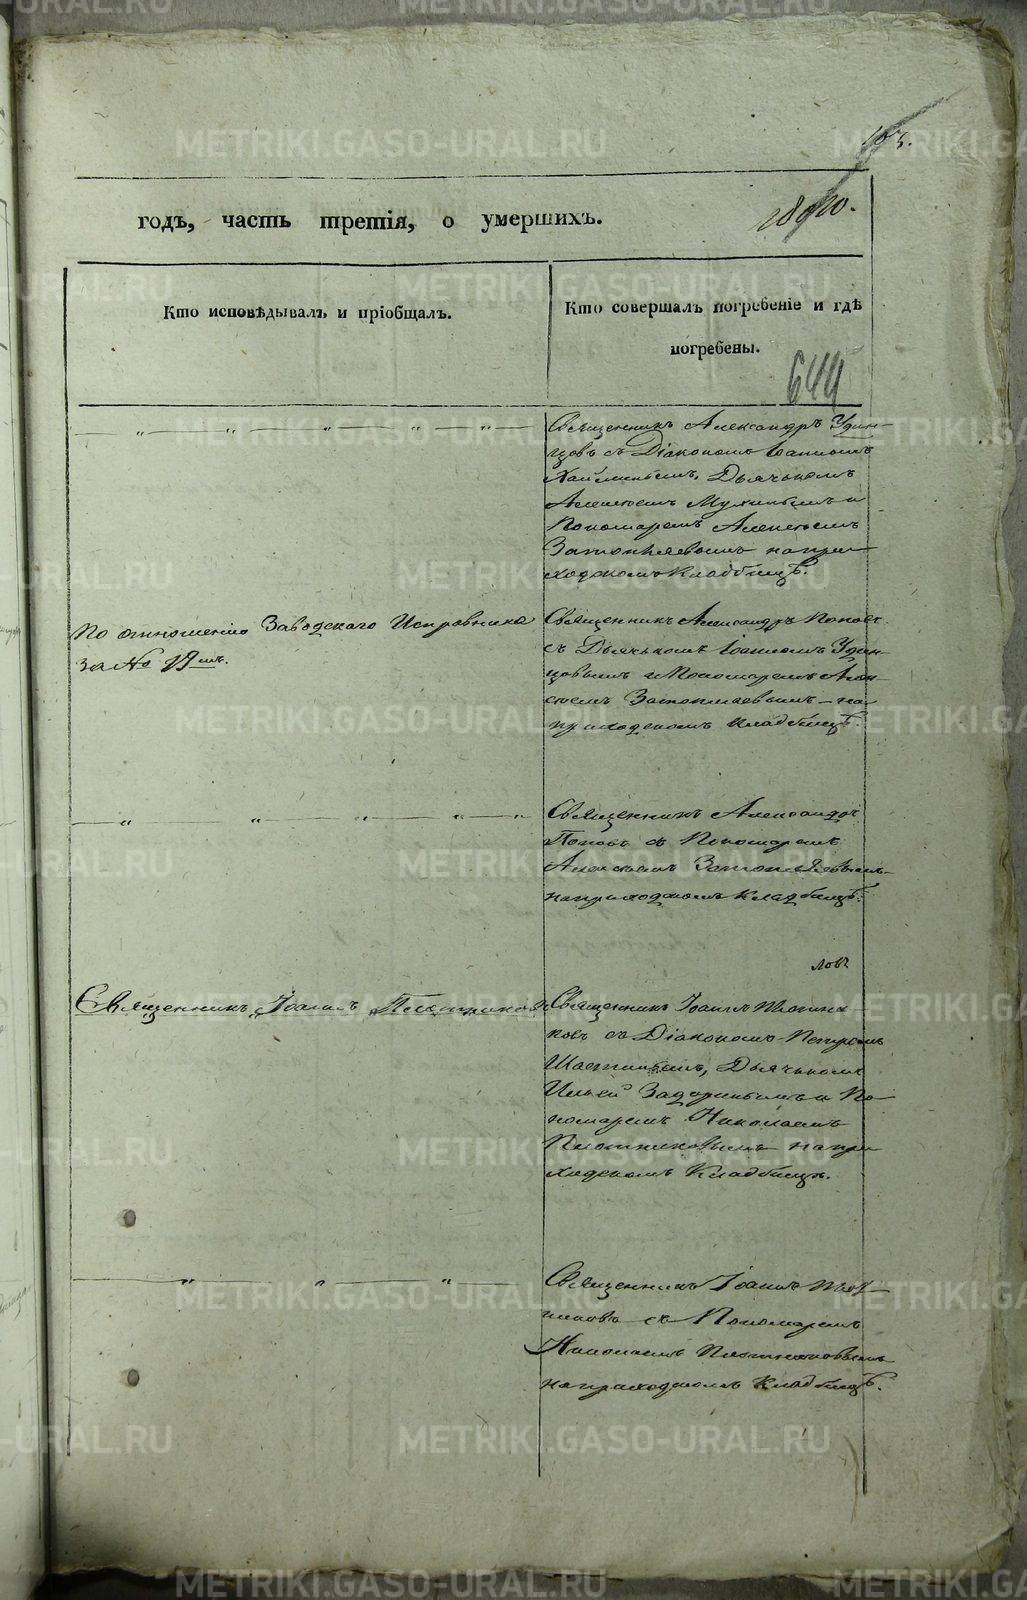 METRIKI.GASO-URAL.RU
103.
годъ, часть третія, о умершихъ.
Кто исповѣдывалъ и пріобщалъ.
Кто совершалъ погребеніе и гдѣ
погребены.
644
Священникъ Александръ Удин-
цовъ съ Діакономъ Іоанномъ
Дьячькомъ
Алексѣемъ и
Пономаремъ Алексѣемъ
Затопляевымъ на при-
ходскомъ Кладбищѣ.
По отношенію Заводскаго Исправника
за №
Священникъ Александръ Поповъ
съ Дьячькомъ Іоанномъ Удин-
цовымъ и Пономаремъ Алек-
сѣемъ Затопляевымъ на
приходскомъ кладбищѣ.
Священникъ Александръ
Поповъ съ Пономаремъ
Алексѣемъ Затопляевымъ
на приходскомъ кладбищѣ.
Священникъ Іоаннъ Плотниковъ
Священникъ Іоаннъ Плотни-
ковъ съ Діакономъ Петромъ
Дьячькомъ
и По-
номаремъ Николаемъ
Плотниковымъ на при-
ходскомъ Кладбищѣ.
Священникъ Іоаннъ Плот-
никовъ съ Пономаремъ
Николаемъ Плотниковымъ
на приходскомъ Кладбищѣ.